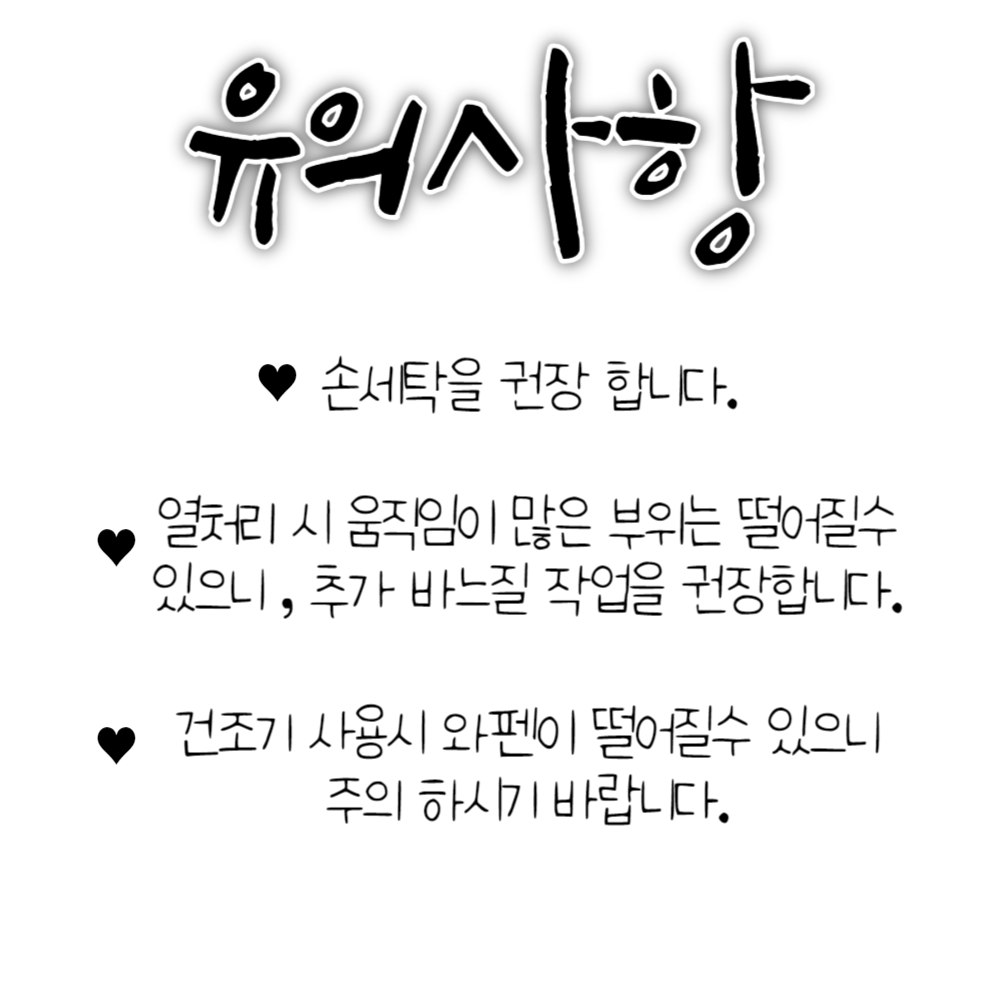 유의사항
♥ 손세탁을 권장 합니다.
♥ 열처리 시 움직임이 많은 부위는 떨어질수
있으니, 추가 바느질 작업을 권장합니다.
♥ 건조기 사용시 와펜이 떨어질수 있으니
주의 하시기 바랍니다.